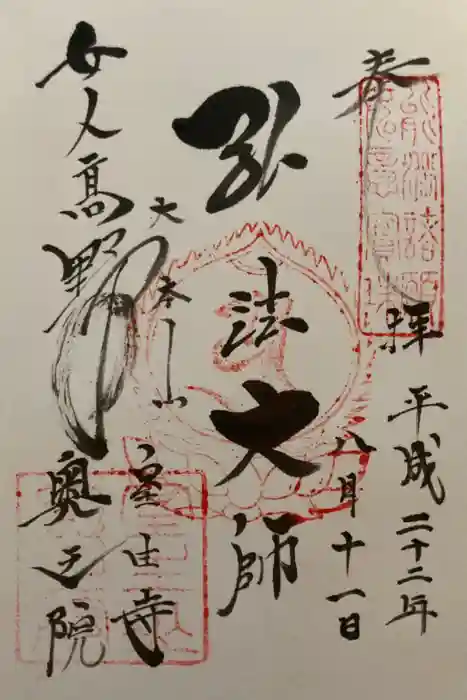 奉拝
平成二十二年
八月十一日
弘法大師
大本山
室生寺
女人高野
奥之院